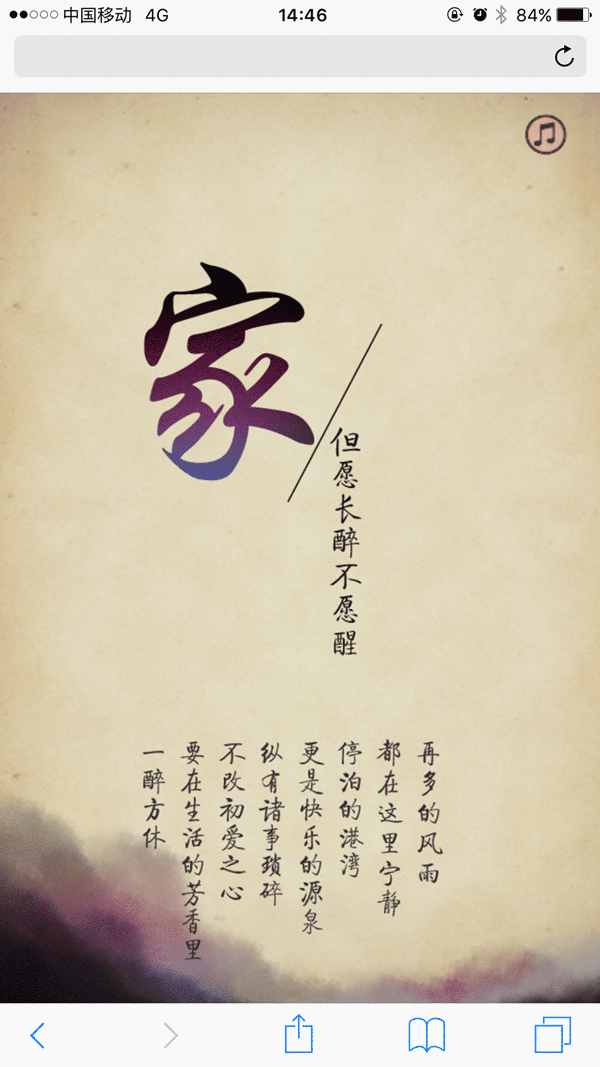 中国移动 4G 14:46 84%
家
但愿长醉不愿醒
再多的风雨
都在这里宁静
停泊的港湾
更是快乐的源泉
纵有诸事琐碎
不改初爱之心
要在生活的芳香里
一醉方休